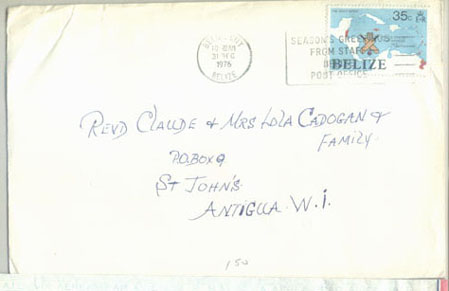 35c
BELIZE
10 30 AM
31 DEC
1976
BELIZE
SEASON'S GREETINGS
FROM STAFF
POST OFFICE
REVD CLAUDE & MRS LOLA CADOGAN &
FAMILY
P.O. BOX 9
ST JOHN'S
ANTIGUA. W.I.
150